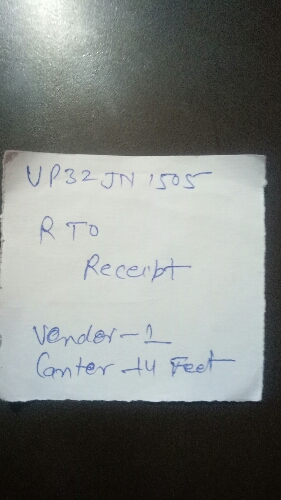 UP32JN1505
RTO
Receipt
Vendor-1
Canter-14 Feet